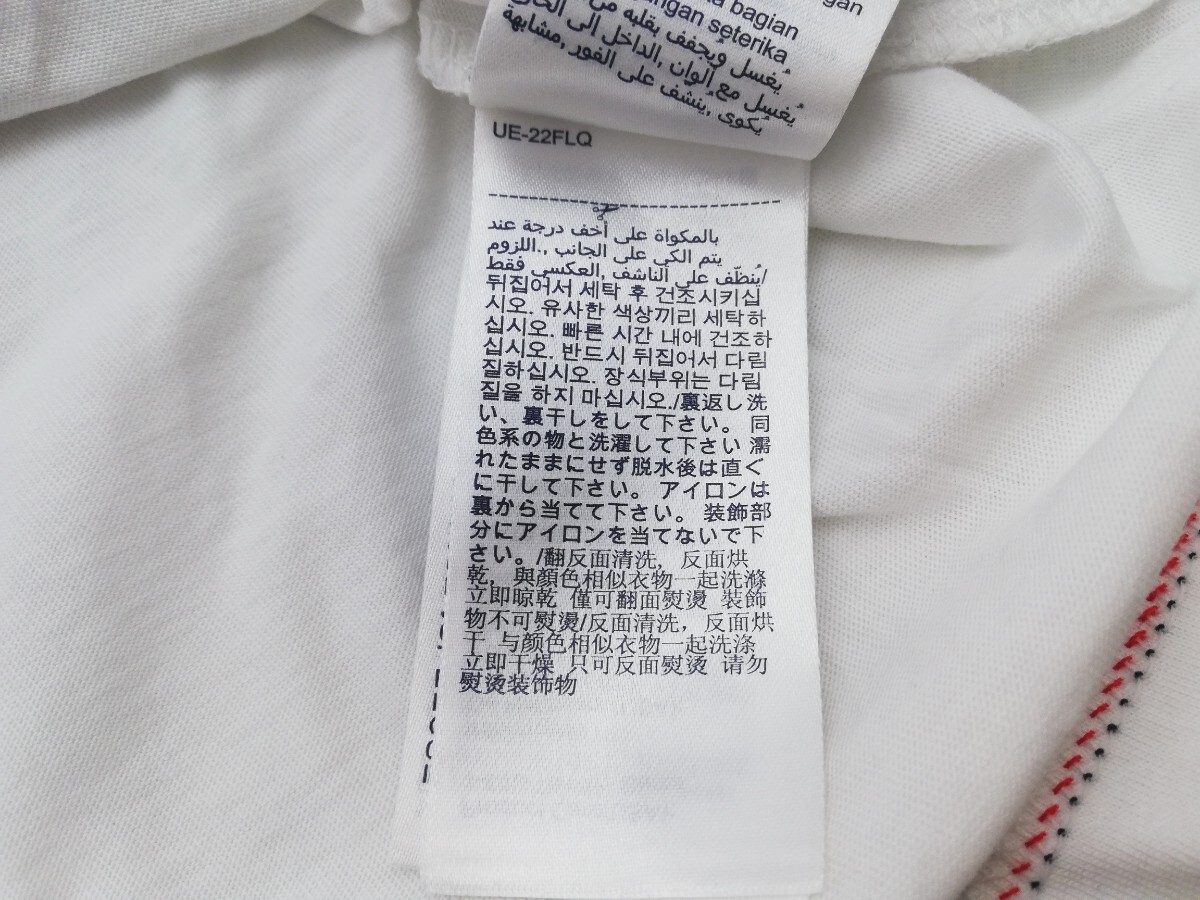 bagian
seterika
يُغسل ويُجفف بقلبه من
يُغسل مع ألوان ,الداخل إلى
يُكوى ,يُنشف على الفور ,مشابهة
UE-22FLQ
بالمكواة على أخف درجة عند
يتم الكي على الجانب ,.اللزوم
/يُنظّف على الناشف ,العكسي فقط
뒤집어서 세탁 후 건조시키십
시오. 유사한 색상끼리 세탁하
십시오. 빠른 시간 내에 건조하
십시오. 반드시 뒤집어서 다림
질하십시오. 장식부위는 다림
질을 하지 마십시오./裏返し洗
い、裏干しをして下さい。 同
色系の物と洗濯して下さい 濡
れたままにせず脱水後は直ぐ
に干して下さい。 アイロンは
裏から当てて下さい。 装飾部
分にアイロンを当てないで下
さい。/翻反面清洗，反面烘
乾，與顏色相似衣物一起洗滌
立即晾乾 僅可翻面熨燙 裝飾
物不可熨燙/反面清洗，反面烘
干 与颜色相似衣物一起洗涤
立即干燥 只可反面熨烫 请勿
熨烫装饰物